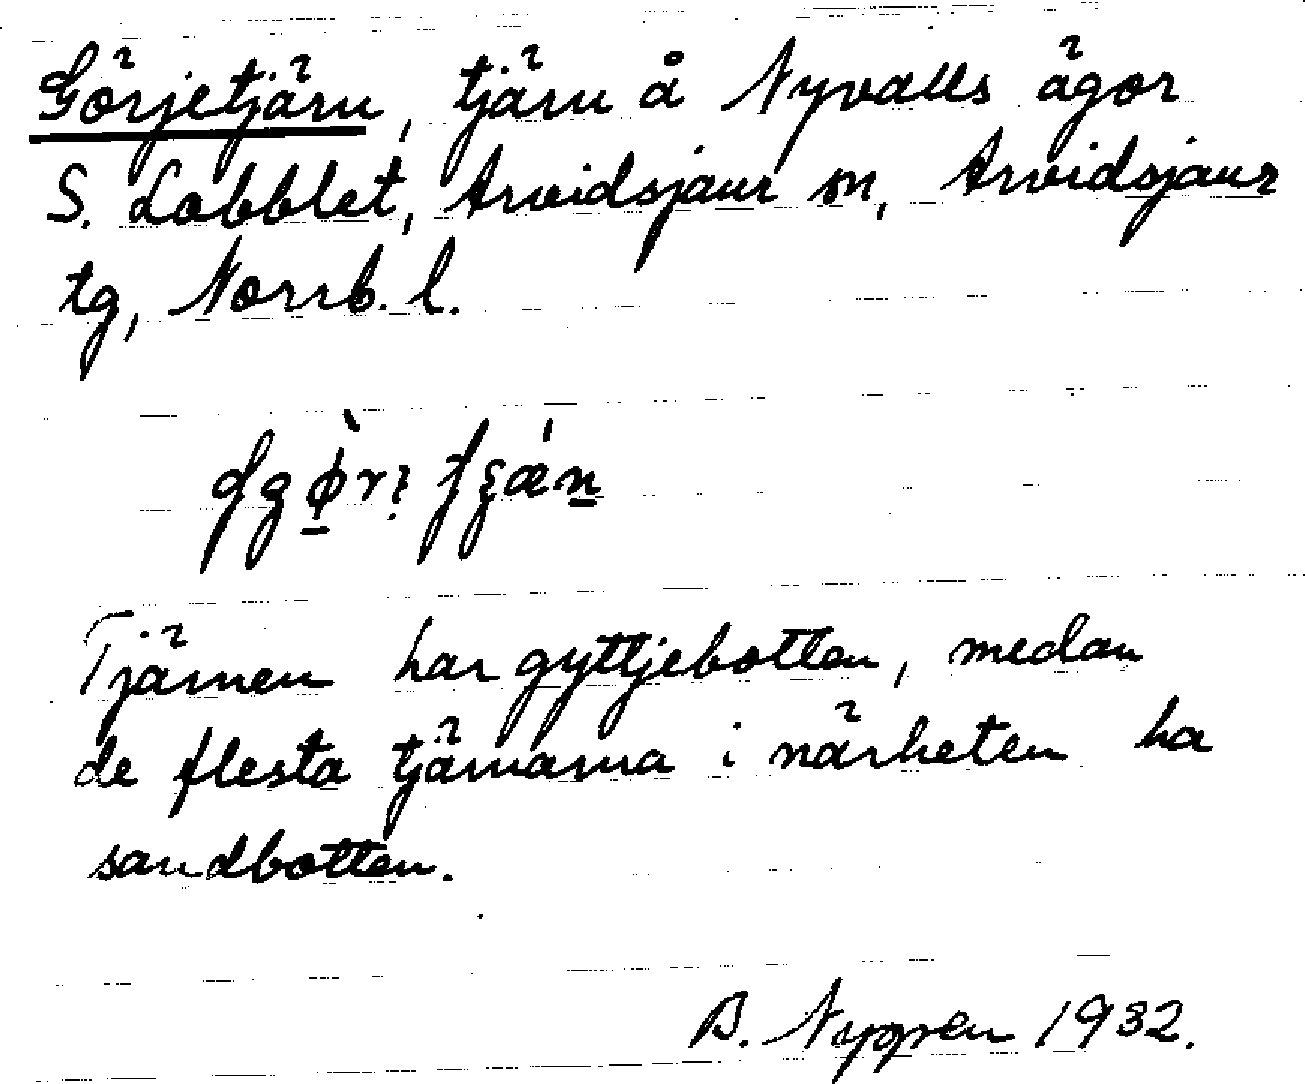 Görjetjärn, tjärn å Nyvalls ägor
S. Lobblet, Arvidsjaur sn, Arvidsjaur
tg, Norrb. l.
Tjärnen har gyttjebotten, medan
de flesta tjärnarna i närheten ha
sandbotten.
B. Nygren 1932.